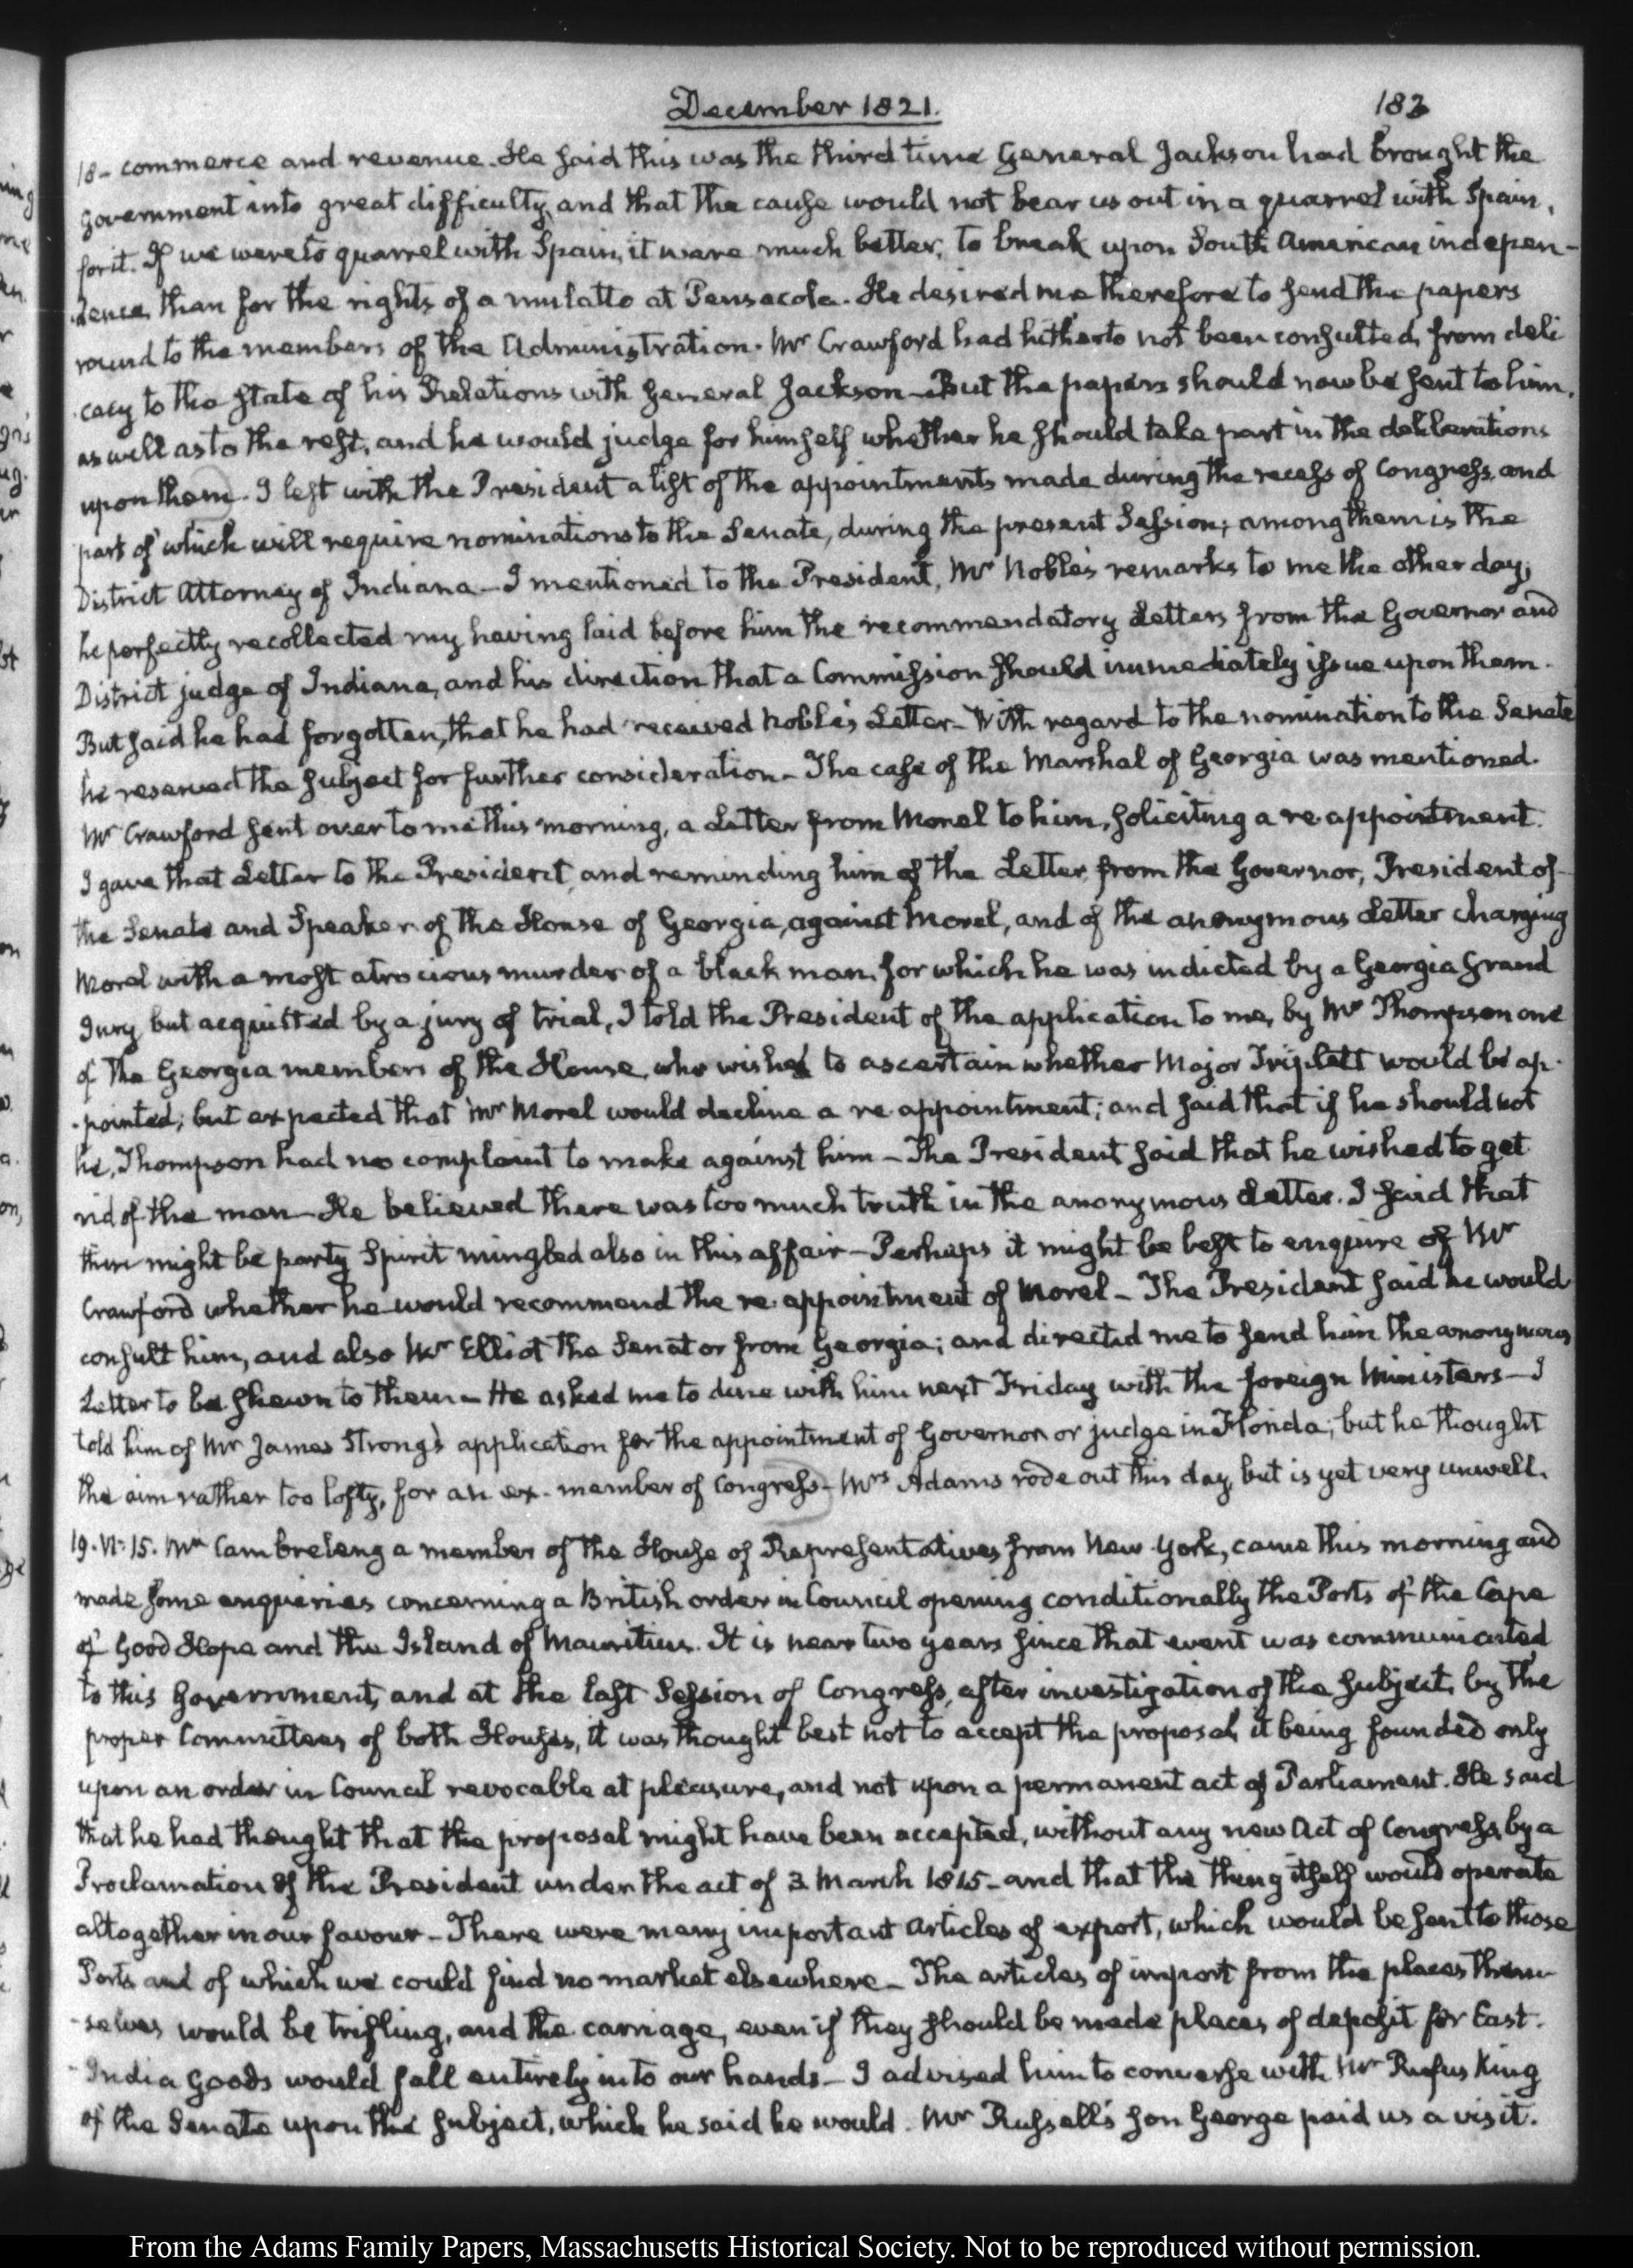 December 1821.
183
18- commerce and revenue. He said this was the third time General Jackson had brought the
government into great difficulty, and that the cause would not bear us out in a quarrel with Spain,
for it. If we were to quarrel with Spain, it were much better, to break upon South American indepen-
dence, than for the rights of a mulatto at Pensacola. He desired me therefore to send the papers
round to the members of the Administration. Mr Crawford had hitherto not been consulted, from deli
cacy to the state of his Relations with General Jackson - But the papers should now be sent to him,
as well as to the rest, and he would judge for himself whether he should take part in the deliberations
upon them. I left with the President a list of the appointments made during the recess of Congress, and
part of which will require nominations to the Senate, during the present Session; among them is the
District Attorney of Indiana - I mentioned to the President, Mr Noble's remarks to me the other day;
he perfectly recollected my having laid before him the recommendatory Letters from the Governor and
District judge of Indiana, and his direction that a Commission should immediately issue upon them.
But said he had forgotten, that he had received Noble's Letter - With regard to the nomination to the Senate
he reserved the subject for further consideration - The case of the Marshal of Georgia was mentioned.
Mr Crawford sent over to me this morning, a Letter from Morel to him, soliciting a re-appointment.
I gave that Letter to the President, and reminding him of the Letter from the Governor, President of
the Senate and Speaker of the House of Georgia, against Morel, and of the anonymous Letter charging
Morel with a most atrocious murder of a black man, for which he was indicted by a Georgia Grand
Jury, but acquitted by a jury of trial, I told the President of the application to me, by Mr Thompson one
of the Georgia members of the House, who wished to ascertain whether Major Triplett would be ap-
-pointed; but expected that Mr Morel would decline a re appointment; and said that if he should not
he, Thompson had no complaint to make against him - The President said that he wished to get
rid of the man - He believed there was too much truth in the anonymous Letter. I said that
there might be party Spirit mingled also in this affair - Perhaps it might be best to enquire of Mr
Crawford whether he would recommend the re-appointment of Morel - The President said he would
consult him, and also Mr Elliot the Senator from Georgia; and directed me to send him the anonymous
Letter to be shewn to them - He asked me to dine with him next Friday with the foreign Ministers - I
told him of Mr James Strong's application for the appointment of Governor or judge in Florida; but he thought
the aim rather too lofty, for an ex-member of Congress - Mrs Adams rode out this day, but is yet very unwell.
19. VI: 15. Mr Cambreleng a member of the House of Representatives from New-York, came this morning and
made some enquiries concerning a British order in Council opening conditionally the Ports of the Cape
of Good Hope and the Island of Mauritius. It is near two years since that event was communicated
to this Government, and at the last Session of Congress, after investigation of the subject, by the
proper Committees of both Houses, it was thought best not to accept the proposal, it being founded only
upon an order in Council revocable at pleasure, and not upon a permanent act of Parliament. He said
that he had thought that the proposal might have been accepted, without any new Act of Congress, by a
Proclamation of the President under the act of 3. March 1815 - and that the thing itself would operate
altogether in our favour - There were many important articles of export, which would be sent to those
Ports and of which we could find no market elsewhere - The articles of import from the places them-
-selves would be trifling, and the carriage, even if they should be made places of deposit for East-
-India Goods would fall entirely into our hands - I advised him to converse with Mr Rufus King
of the Senate upon the subject, which he said he would. Mr Russell's son George paid us a visit.
From the Adams Family Papers, Massachusetts Historical Society. Not to be reproduced without permission.